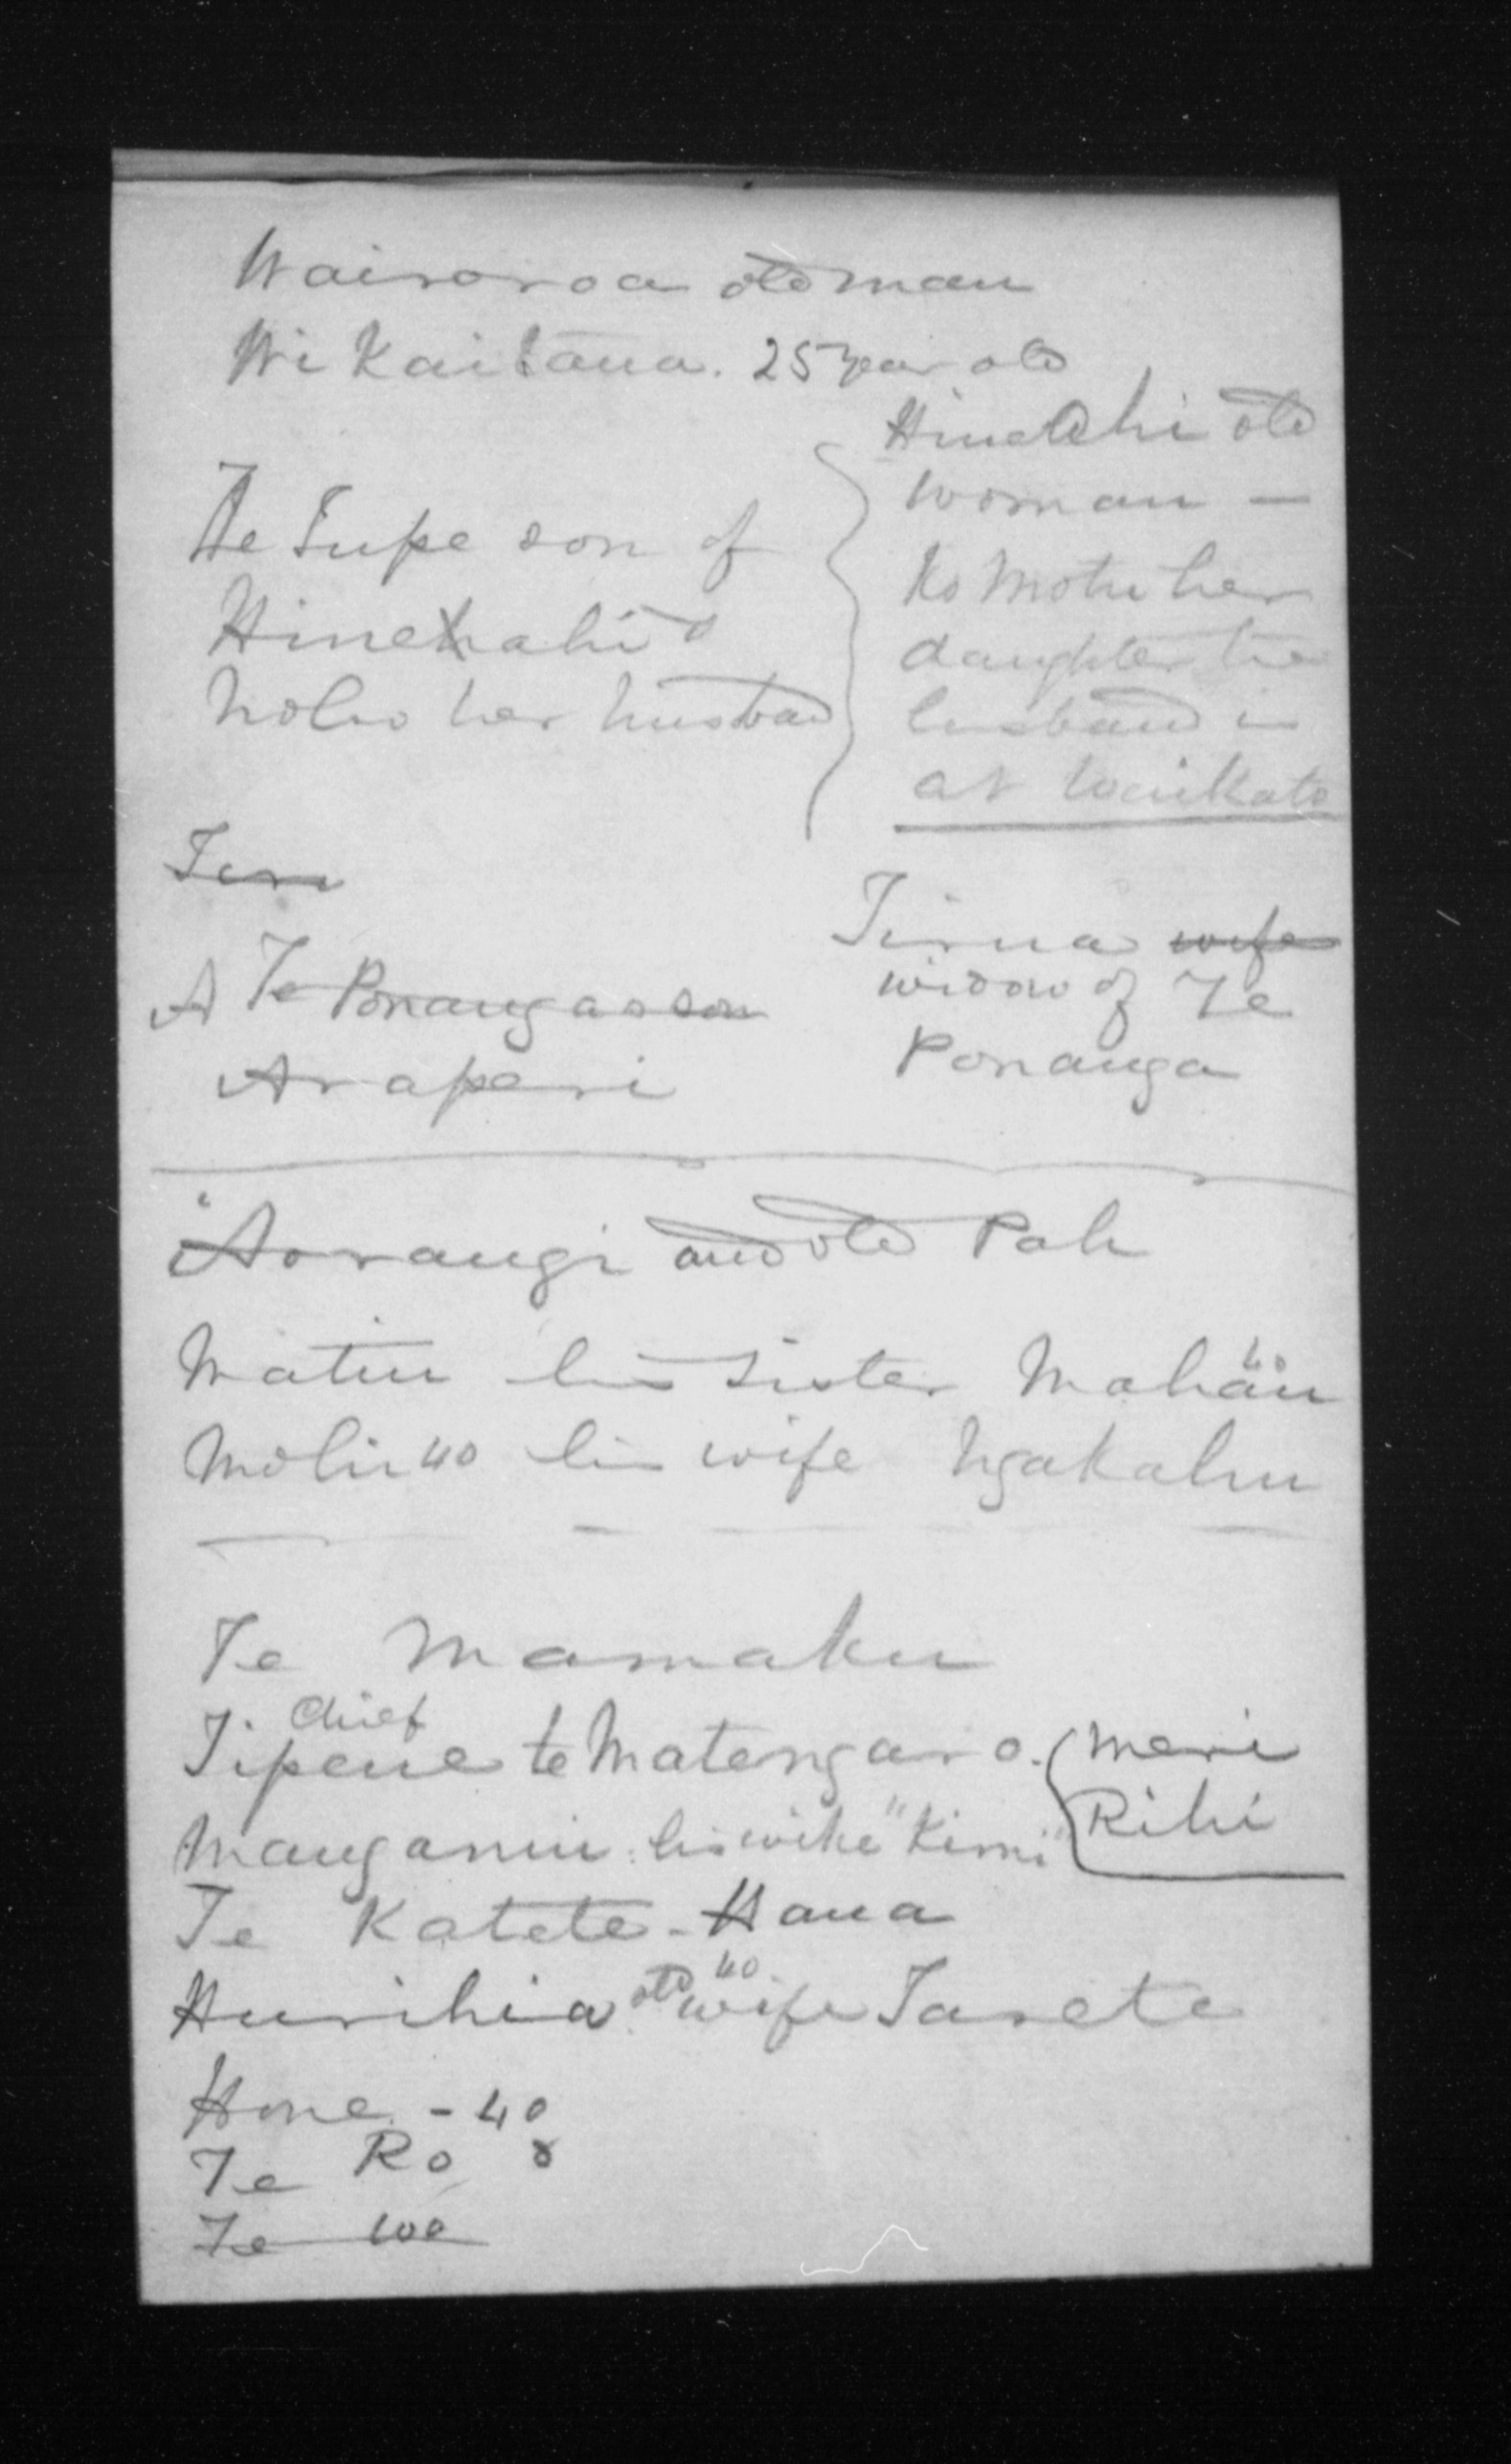 Wairoroa old man
Wi Kaitana. 25 year old
Te Tupe son of
Hinekahi &
Noho her husband
HineAhi old
woman —
Ko Motu her
daughter her
husband is
at Waikato
A Te Ponangas son
Araperi
Tirua wife
widow of Te
Ponanga
Aorangi and old Pah
Matiu his sister Mahau 40
Mohi 40 his wife Ngakahu
Te Mamaku
Chief
Tipene te Matengaro. Meri
Rihi
Manganui: his wife "Kimi"
Te Katete - Hana
Hurihia old wife 40 Tarete
Hone. - 40
Te Ro 8
Te wo